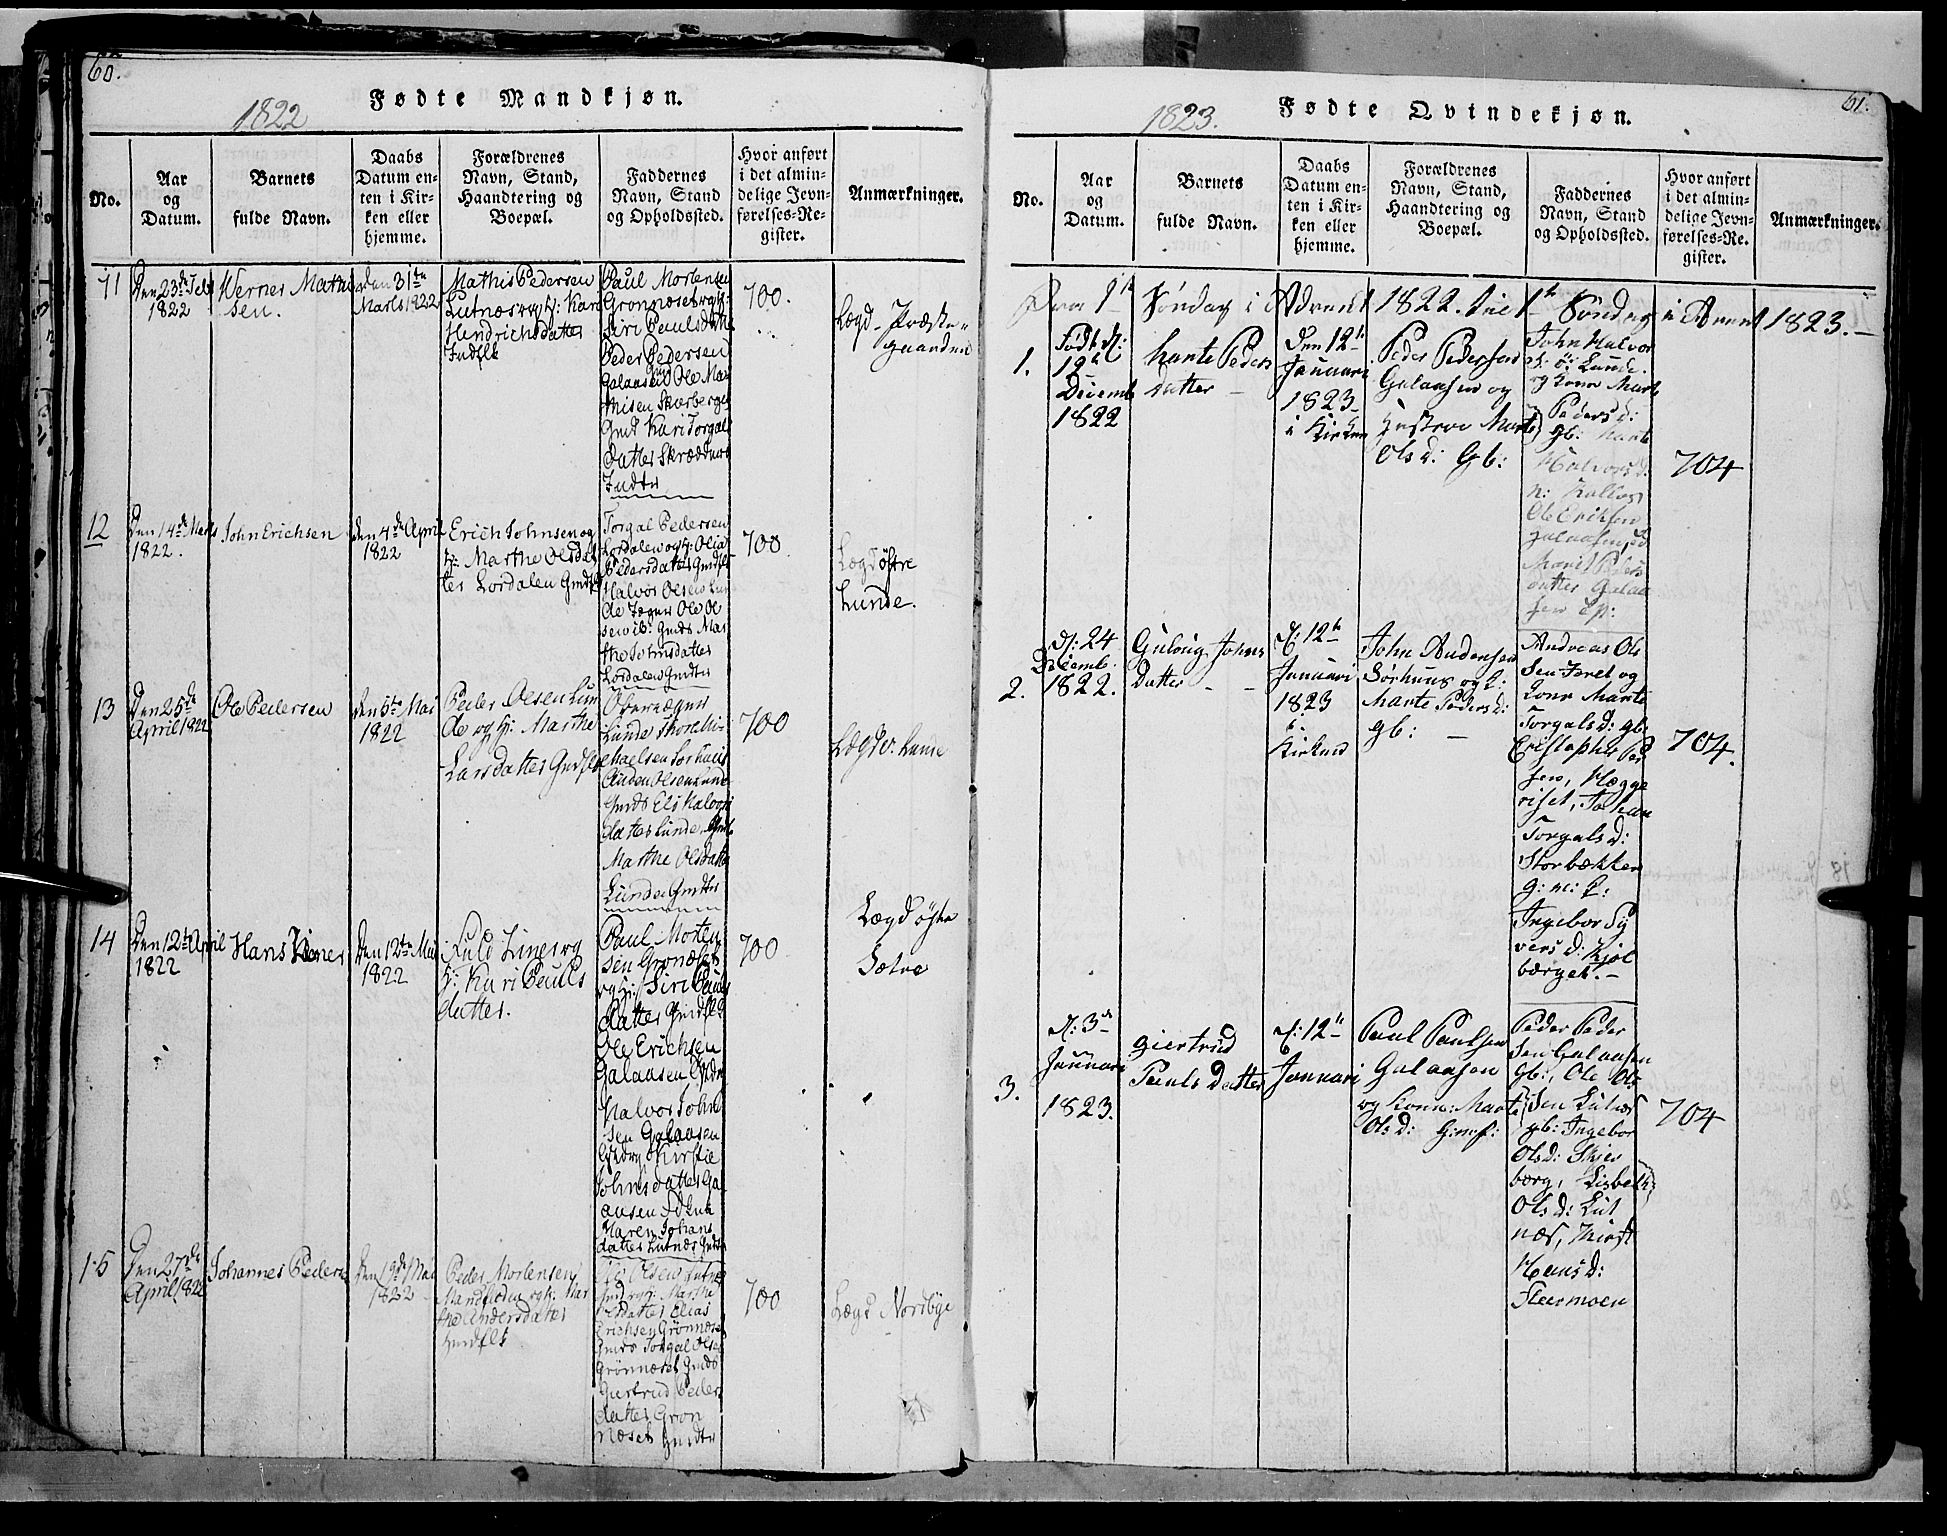 60.
Fødte Mandkjøn.
1822
No.
Aar
og
Datum.
Barnets
fulde Navn.
Daabs
Datum en-
ten i Kir-
ken eller
hjemme.
Forældrenes
Navn, Stand,
Haandtering og
Boepæl.
Faddernes
Navn, Stand
og Opholdssted.
Hvor anført
i det almin-
delige Jevn-
førelses-Re-
gister.
Anmærkninger.
11
Den 23de Feb
1822
Werner Mathi
sen.
den 31te
Marts 1822
Mathis Pedersen
Lutnes og H: Kari
Hendrichsdatter
Indflk
Paul Mortensen
Grønnæset og H:
Siri Paulsdatter
Peder Pedersen
Galaasen Ole Ma
thisen Skarberget
Gmd Kari Torgals
datter Skrædder
Indtr
700.
Lægd Præste-
gaarden
12
Den 14de Marts
1822.
John Erichsen
den 4de April
1822
Erich Johnsen og
H: Marthe Olsdat
ter Lordalen Gmdflk
Torgal Pedersen
Lordalen og H: Olia
Pedersdatter Gmdflk
Halvor Olsen Lun
de Ole Ol
sen ib: Gmds Mar
the Johnsdatter
Lordalen Gmdtr
700.
Lægd østre
Lunde.
13
Den 25de
April 1822
Ole Pedersen
den 5te Mai
1822
Peder Olsen Lun
de og H: Marthe
Larsdatter Gmdflk
Lunde Thore Mi-
chaelsen Sorhuus
Auden Olsen Lunde
Gmds Eli Halvors
datter Lunde Gmd
Marthe Olsdatter
Lunde Gmdtr
700
Lægd v: Lunde
14
Den 12te April
1822
Hans Lines
den 12te Mai
1822
Fuld Lines og
H: Kari Pauls
datter.
Paul Morten
sen Grønæset
og H: Siri Pauls
datter Gmdflk
Ole Erichsen
Galaasen Gmdr
Halvor John
sen Galaasen
Gmdrg Kirstie
Johnsdatter Ga
aasen
Maren Johans
datter Lutnæs Gmdtr
700
Lægd østre
Sætre
15
Den 27de
April 1822
Johannes Peders
den 19de Mai
1822
Peder Mortensen
og H: Mar
the Andersdatter
Gmdflk
Ole Olsen Lutnæs
Gmdr og H: Marthe
Olsdatter Elias
Erichsen Grønnæset
Gmds Torgal Olsen
Grønnæset Gmds
Giertrud Peders
datter Grøn
næset Gmdtr
700
Lægd Nordbye
61.
Fødte Qvindekjøn.
1823.
No.
Aar
og
Datum.
Barnets
fulde Navn.
Daabs
Datum en-
ten i Kir-
ken eller
hjemme.
Forældrenes
Navn, Stand,
Haandtering og
Boepæl.
Faddernes
Navn, Stand
og Opholdssted.
Hvor anført
i det almin-
delige Jevn-
førelses-Re-
gister.
Anmærkninger.
Fra 1ste Søndag i Advent 1822. til 1ste Søndag i Advent 1823.
1.
Født d:
19de
Decemb
1822
Marte Peders
datter
Den 12te
Januari
1823
i Kirken
Peder Pedersen
Galaasen og
Hustroe Marte
Olsd: Gb:
John Halvor
s: ö: Lunde
og kone Marte
Pedersd:
gb: Marte
Halvorsd:
Ole Eriksen
Galaasen
Marit Peders
datter Galaa
sen
704
2.
d: 24
Decemb.
1822.
Guloug Johns
Datter
d: 12te
Januari
1823
i
Kirken
John Andersen
Sörhuus og
Marte Pedersd:
gb:
Andreas Ols
sen og
kone Marte
Torgalsd: gb:
Cristopher Pe
sen, Hægge
riset, Johan
Torgalsd:
Storbækken
g: m:
Ingebor Sy
versd: Kjöl
bærget.
704.
3.
d: 3de
Januari
1823.
Giertrud
Pauls Datter
d: 12te
Januari
Paul Paulsen
Galaasen
og kone: Marte
Olsd:
Peder Peder
sen Galaasen
gb:, Ole Ols
sen Lutnæs
gb: Ingebor
Olsd: Skier
bærg, Lisbeth
Olsd: Lut
næs, Kirsti
Hansd:
Steermoen
704